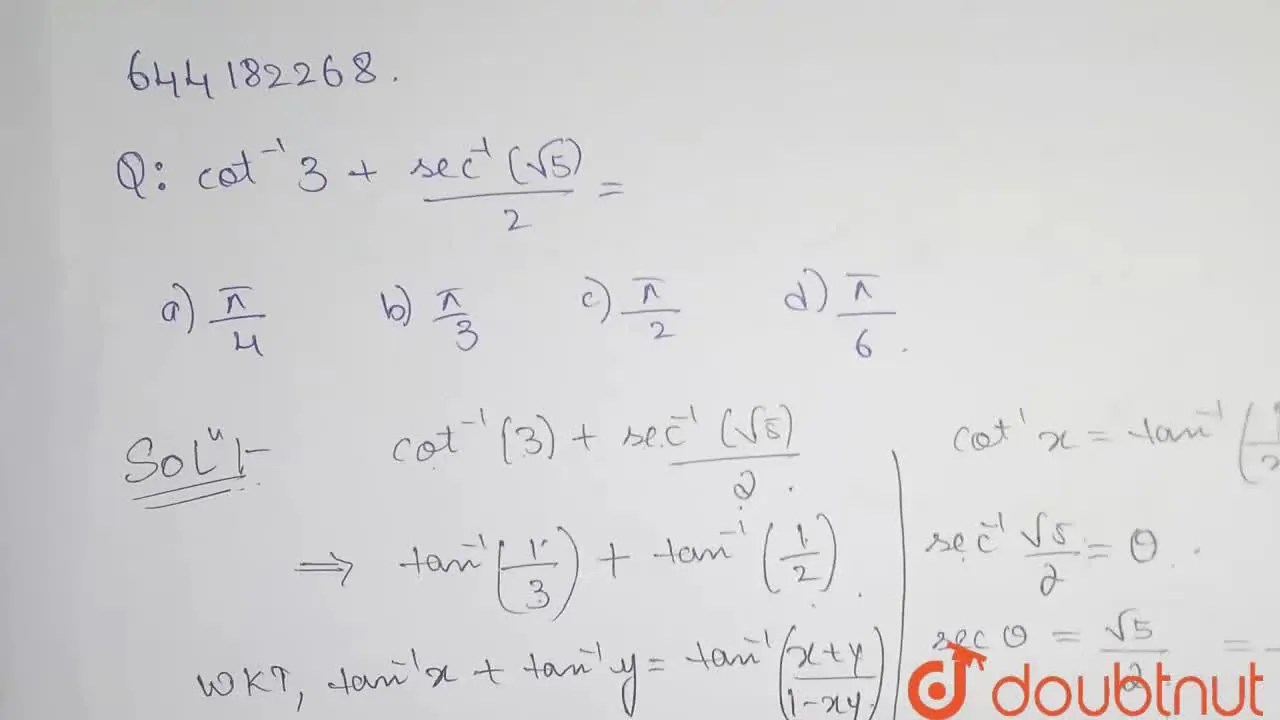 644182268.
Q: cot⁻¹ 3 + sec⁻¹(√5)/2 =
a) π/4 b) π/3 c) π/2 d) π/6.
Solⁿ:- cot⁻¹(3) + sec⁻¹(√5)/2.
⇒ tan⁻¹(1/3) + tan⁻¹(1/2).
WKT, tan⁻¹x + tan⁻¹y = tan⁻¹(x+y/1-xy)
cot⁻¹x = tan⁻¹(
sec⁻¹ √5/2 = θ.
sec θ = √5/2. =
doubtnut